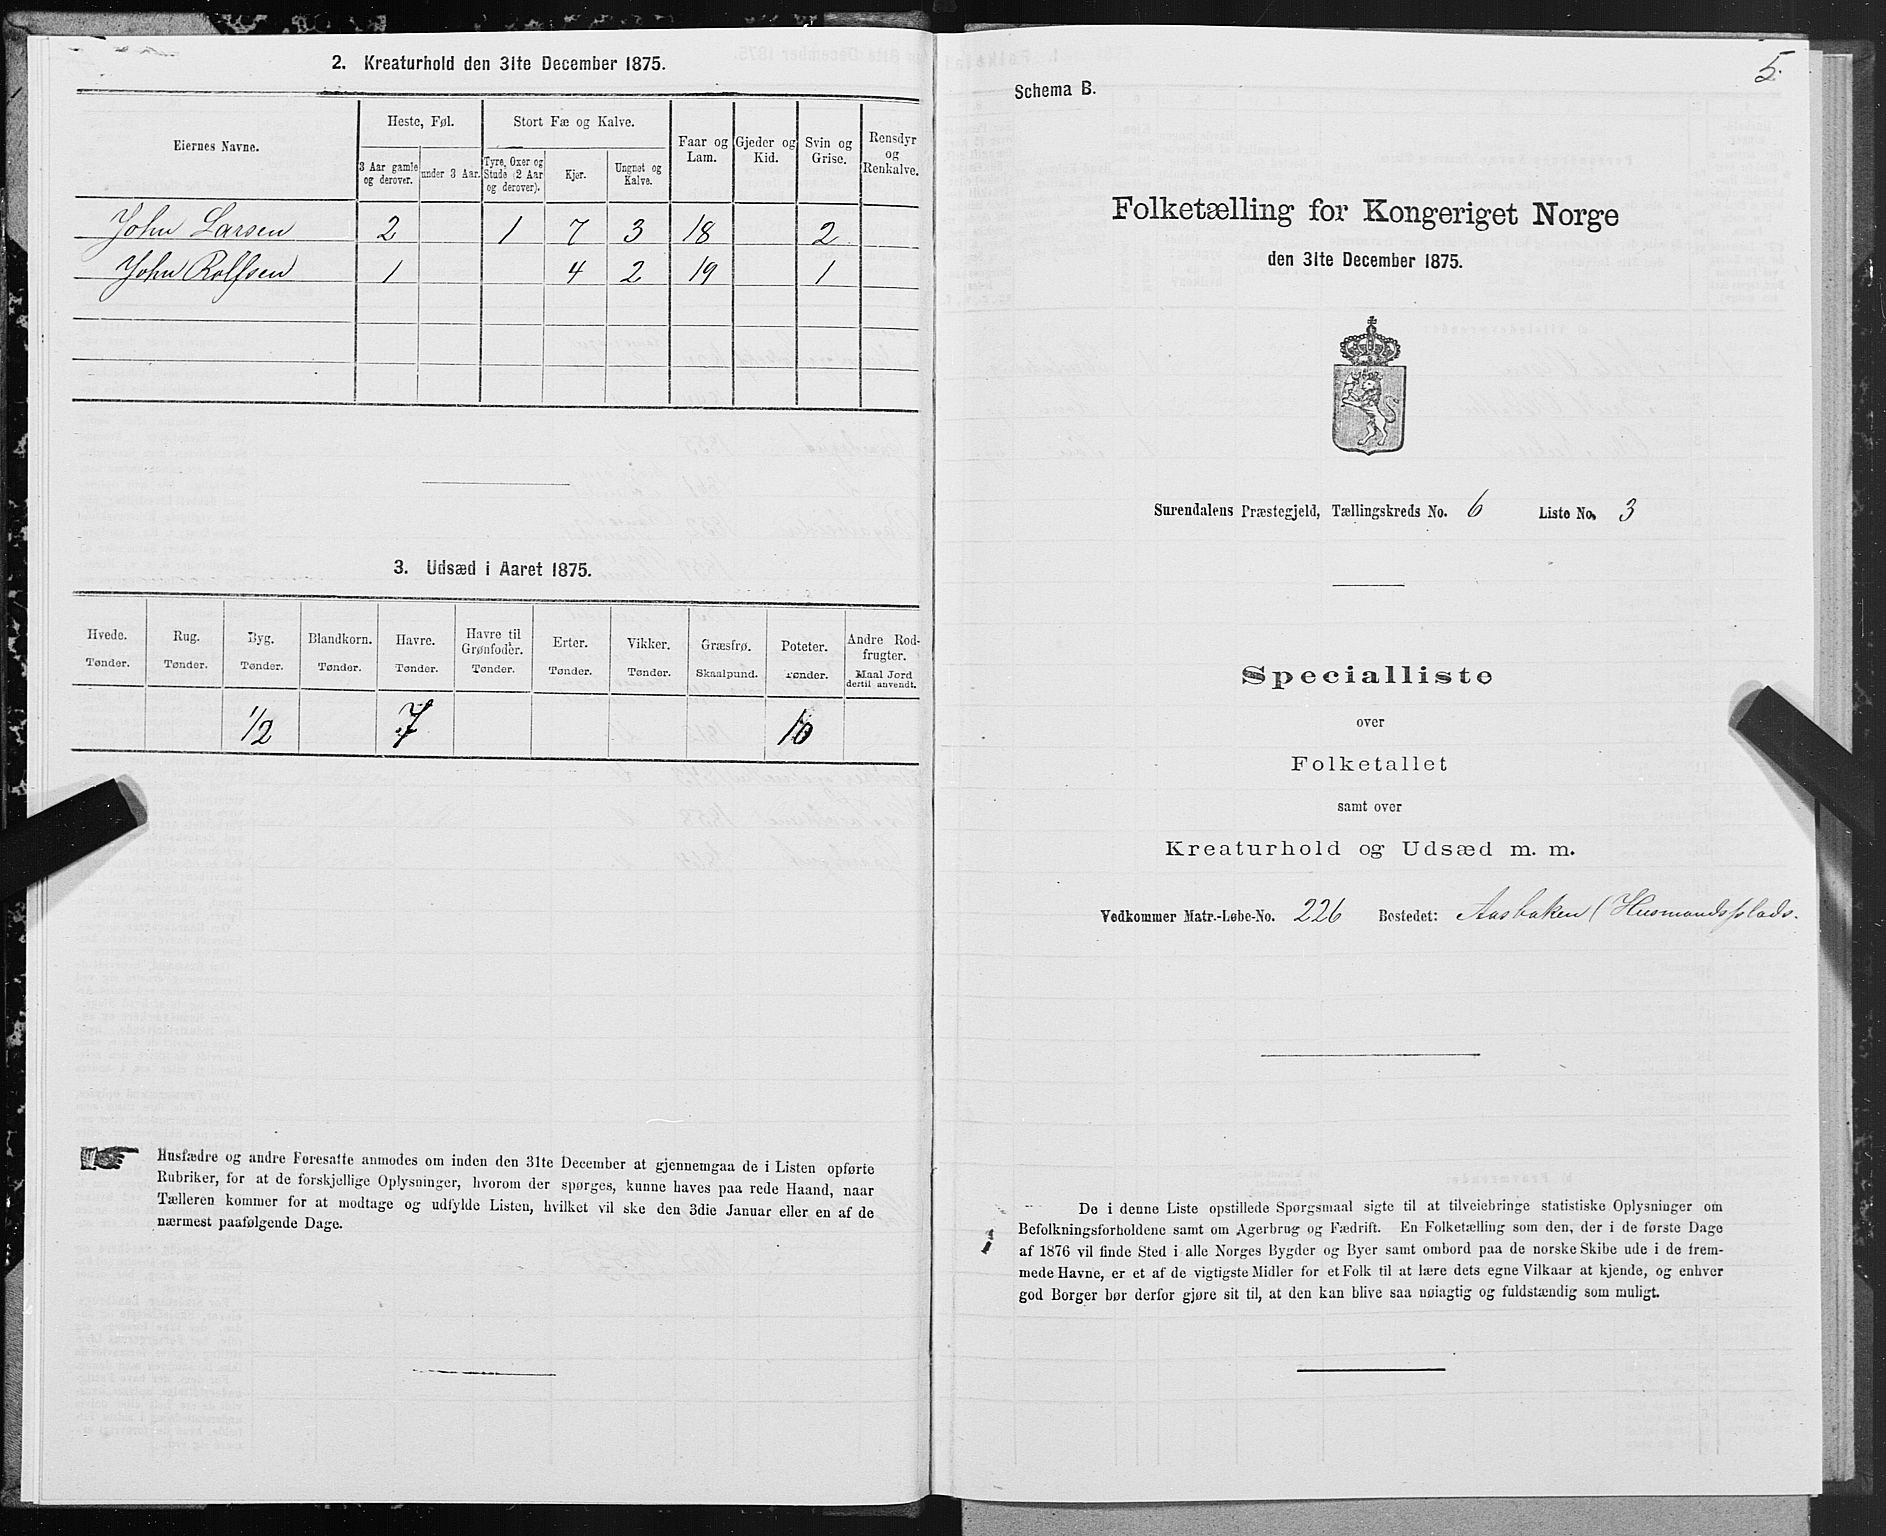 2. Kreaturhold den 31te December 1875.
Eiernes Navne.
Heste, Føl.
Stort Fæ og Kalve.
Faar og Lam.
Gjeder og Kid.
Svin og Grise.
Rensdyr og Renkalve.
3 Aar gamle og derover.
under 3 Aar.
Tyre, Oxer og Stude (2 Aar og derover).
Kjør.
Ungnøt og Kalve.
John Larsen 2 1 7 3 18 2
John Rolfsen 1 4 2 19 1
3. Udsæd i Aaret 1875.
Hvede. Rug. Byg. Blandkorn. Havre. Havre til Grønfoder. Erter. Vikker. Græsfrø. Poteter. Andre Rodfrugter.
Tønder. Tønder. Tønder. Tønder. Tønder. Tønder. Tønder. Tønder. Skaalpund. Tønder. Maal Jord dertil anvendt.
1/2 7 10
Husfædre og andre Foresatte anmodes om inden den 31te December at gjennemgaa de i Listen opførte
Rubriker, for at de forskjellige Oplysninger, hvorom der spørges, kunne haves paa rede Haand, naar
Tælleren kommer for at modtage og udfylde Listen, hvilket vil ske den 3die Januar eller en af de
nærmest paafølgende Dage.
5.
Schema B.
Folketælling for Kongeriget Norge
den 31te December 1875.
Surendalens Præstegjeld, Tællingskreds No. 6 Liste No. 3
Specialliste
over
Folketallet
samt over
Kreaturhold og Udsæd m. m.
Vedkommer Matr.-Løbe-No. 226 Bostedet: Aasbaken (Husmandsplads.
De i denne Liste opstillede Spørgsmaal sigte til at tilveiebringe statistiske Oplysninger om
Befolkningsforholdene samt om Agerbrug og Fædrift. En Folketælling som den, der i de første Dage
af 1876 vil finde Sted i alle Norges Bygder og Byer samt ombord paa de norske Skibe ude i de frem-
mede Havne, er et af de vigtigste Midler for et Folk til at lære dets egne Vilkaar at kjende, og enhver
god Borger bør derfor gjøre sit til, at den kan blive saa nøiagtig og fuldstændig som muligt.